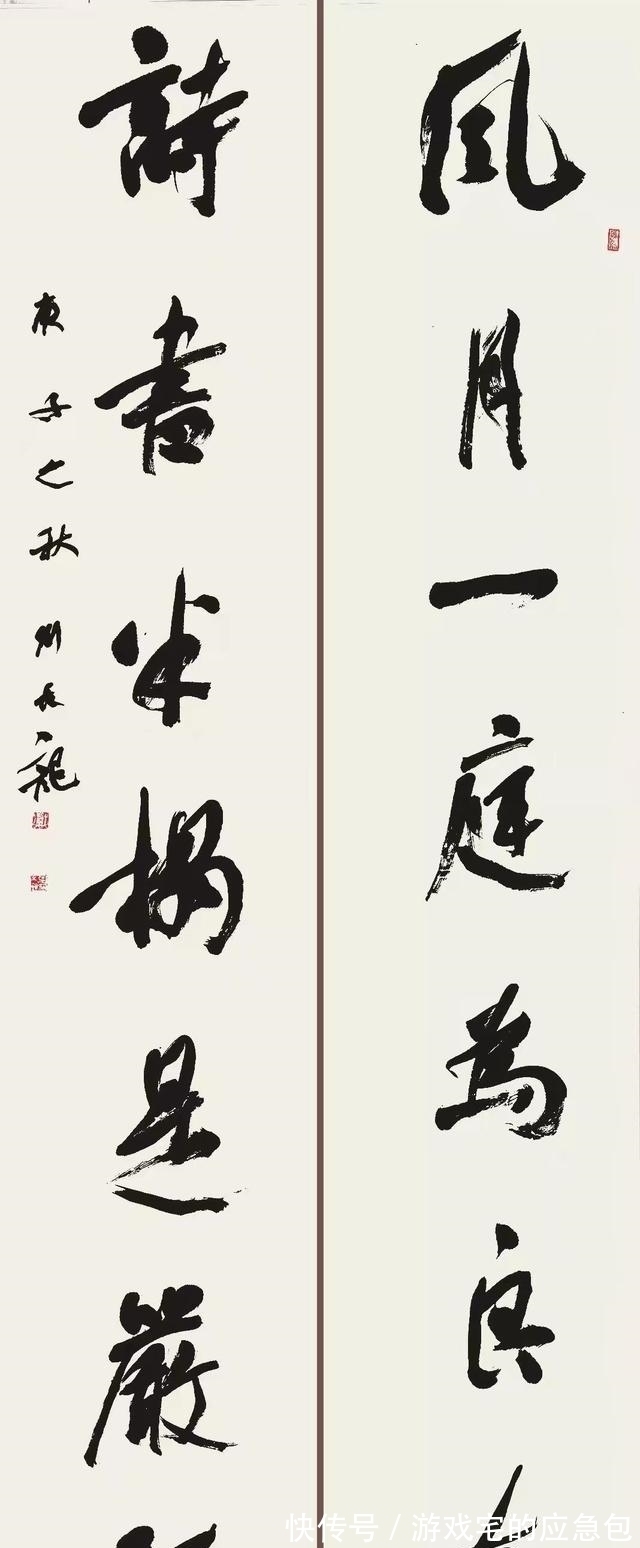 風月一庭為良
詩書半榻是嚴
庚子之秋
快传号 / 游戏宅的应急包